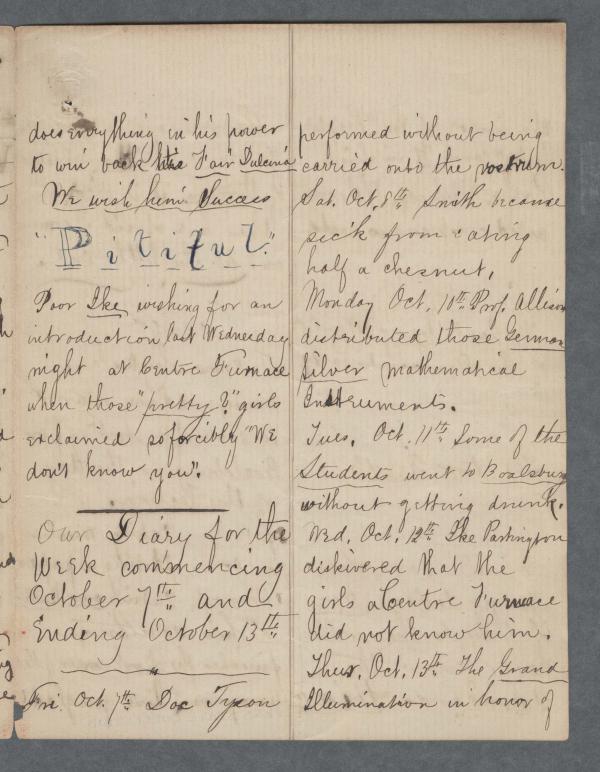 does everything in his power
to win back his Fair Dulcina
We wish him Success
"Pitiful."
Poor Ike wishing for an
introduction last Wednesday
night at Centre Furnace
when those "pretty?" girls
exclaimed so forcibly "We
don't know you".
Our Diary for the
Week commencing
October 7th and
Ending October 13th
Fri. Oct. 7th Doc Tyson
performed without being
carried onto the rostrum.
Sat. Oct. 8th Smith became
sick from eating
half a chesnut.
Monday Oct. 10th Prof. Allison
distributed those German
Silver mathematical
Instruments.
Tues. Oct. 11th Some of the
Students went to Boalsburg
without getting drunk.
Wed. Oct. 12th Ike Partington
diskivered that the
girls at Centre Furnace
did not know him.
Thur. Oct. 13th The Grand
Illumination in honor of